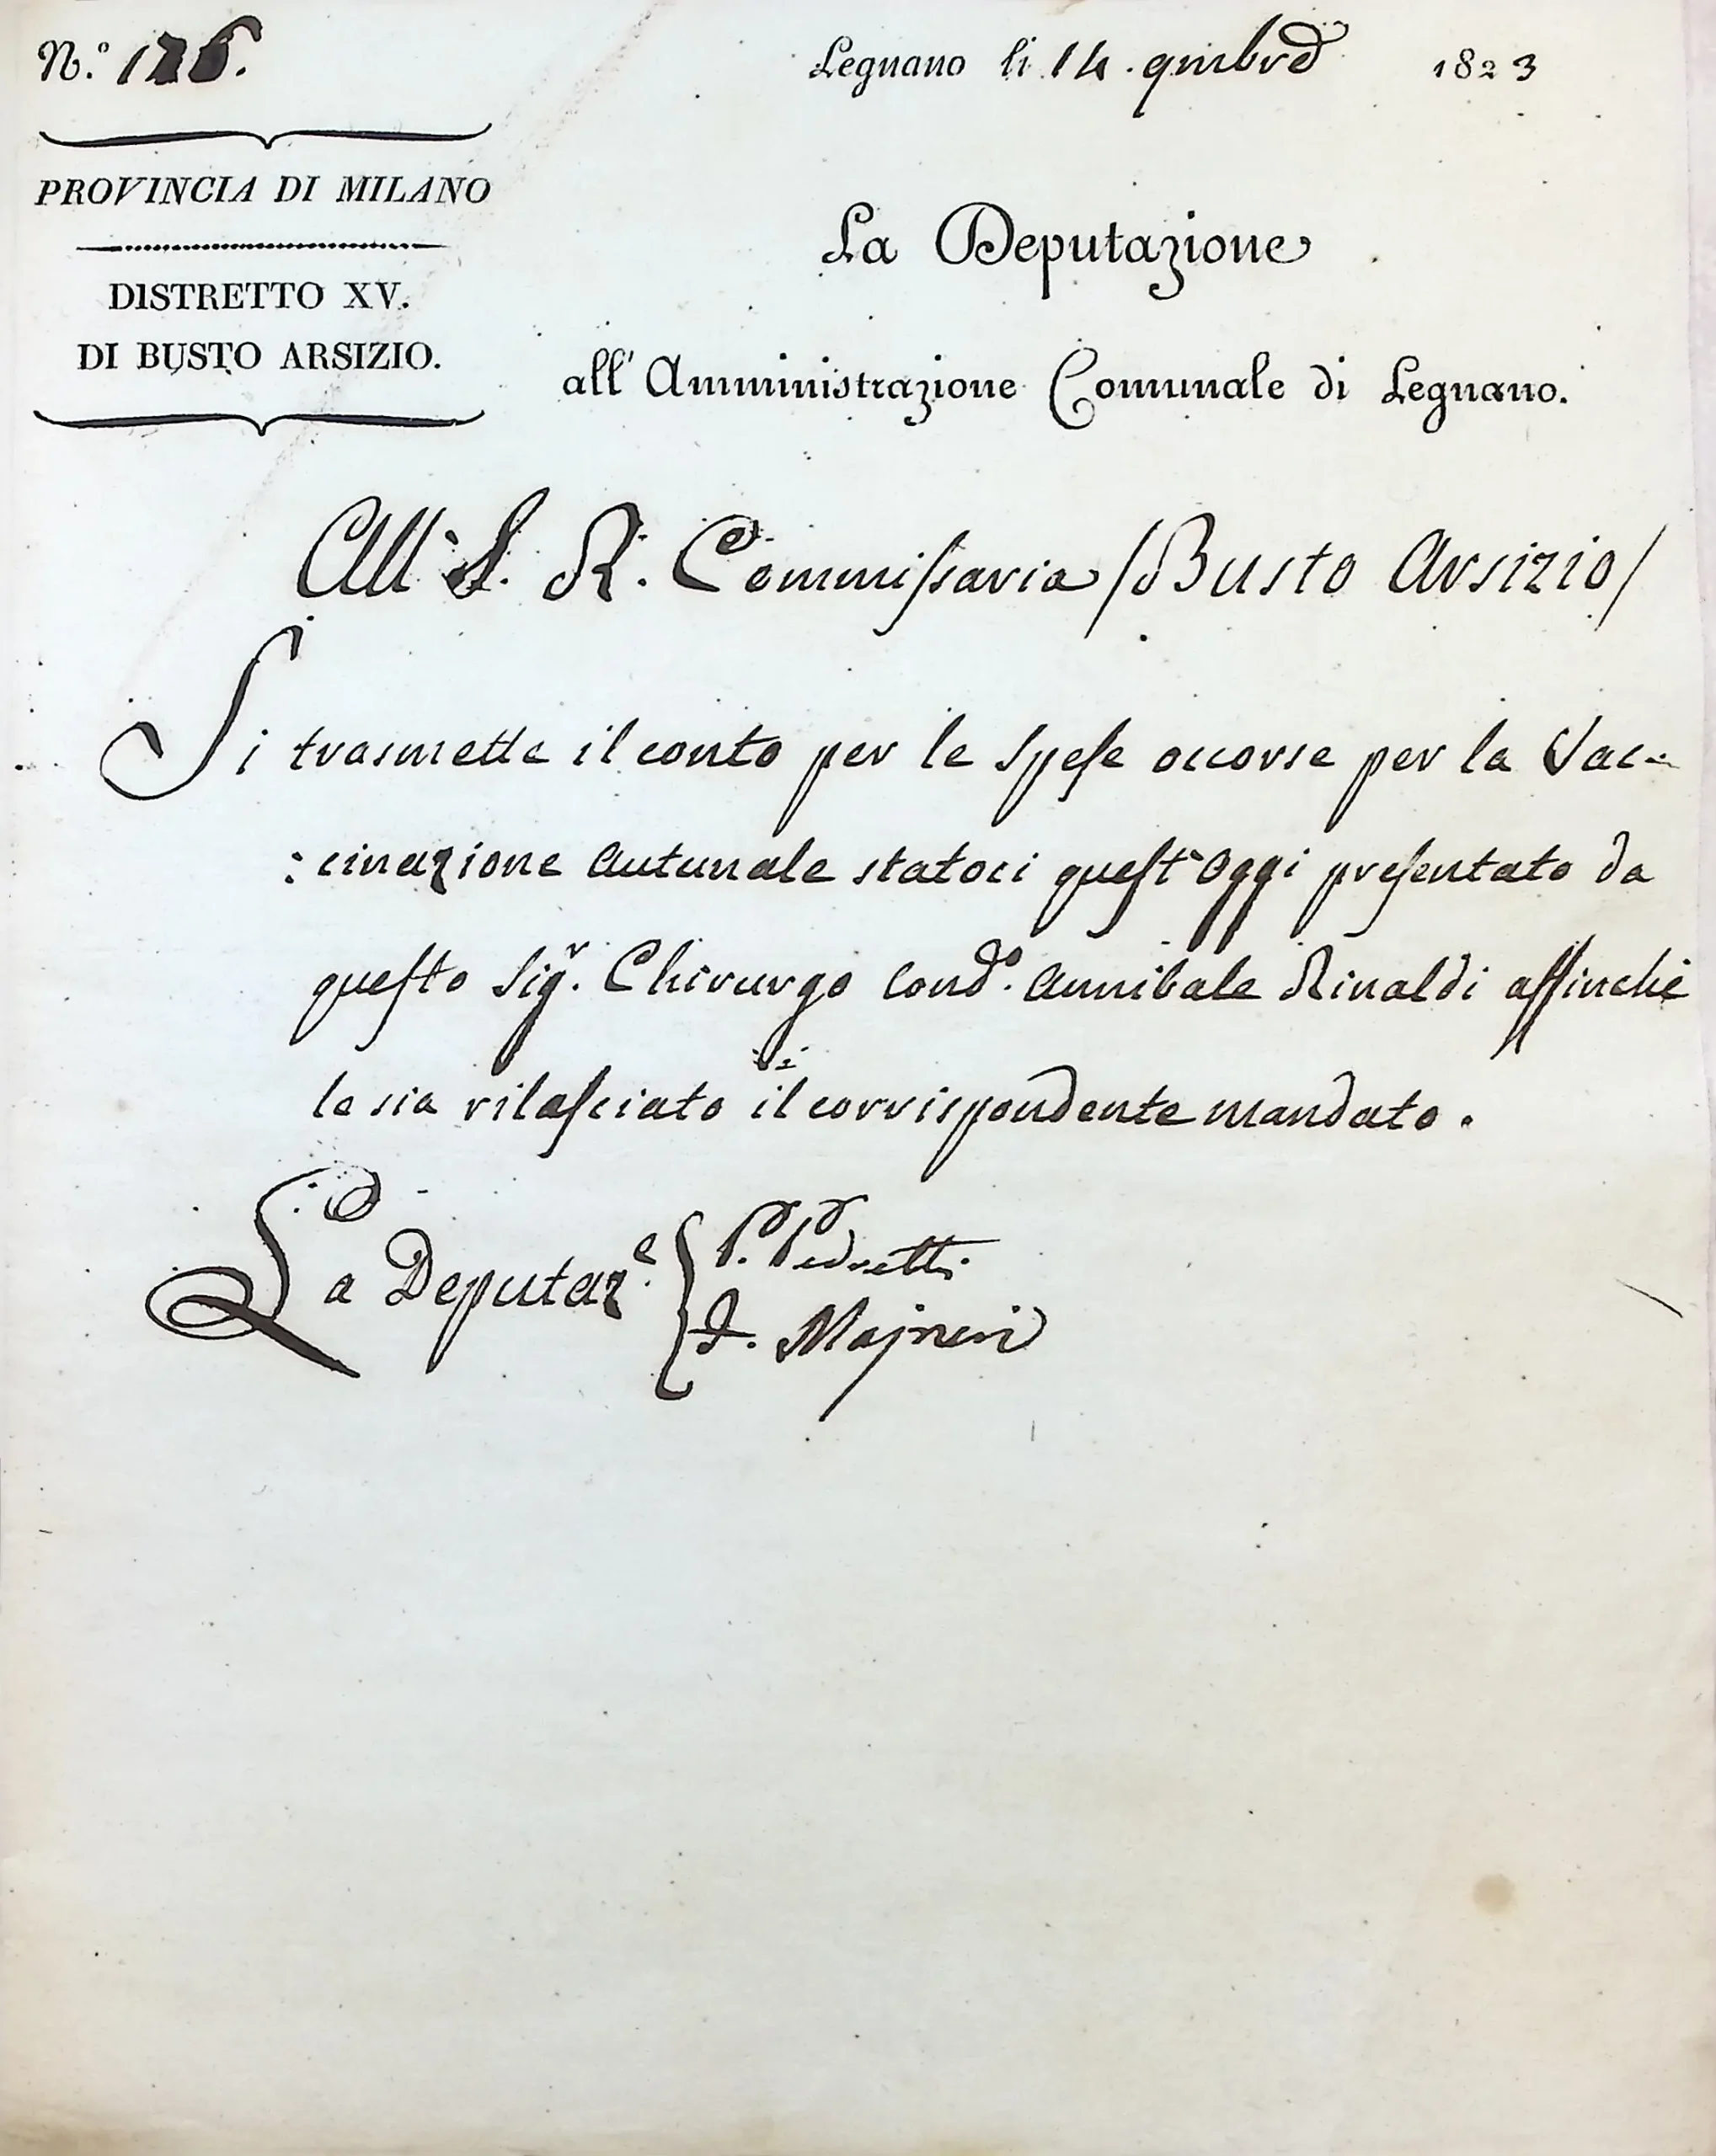 N.º 126.
Legnano li 14. 9mbre 1823
PROVINCIA DI MILANO
DISTRETTO XV.
DI BUSTO ARSIZIO.
La Deputazione
all' Amministrazione Comunale di Legnano.
All' I. R. Commissaria /Busto Arsizio/
Si trasmette il conto per le spese occorse per la Vac-
:cinazione Autunale statoci quest'Oggi presentato da
questo Sigr. Chirurgo Condo. Annibale Rinaldi affinchè
le sia rilasciato il corrispondente mandato.
La Deputaze. { P. Pedretti
J. Majneri